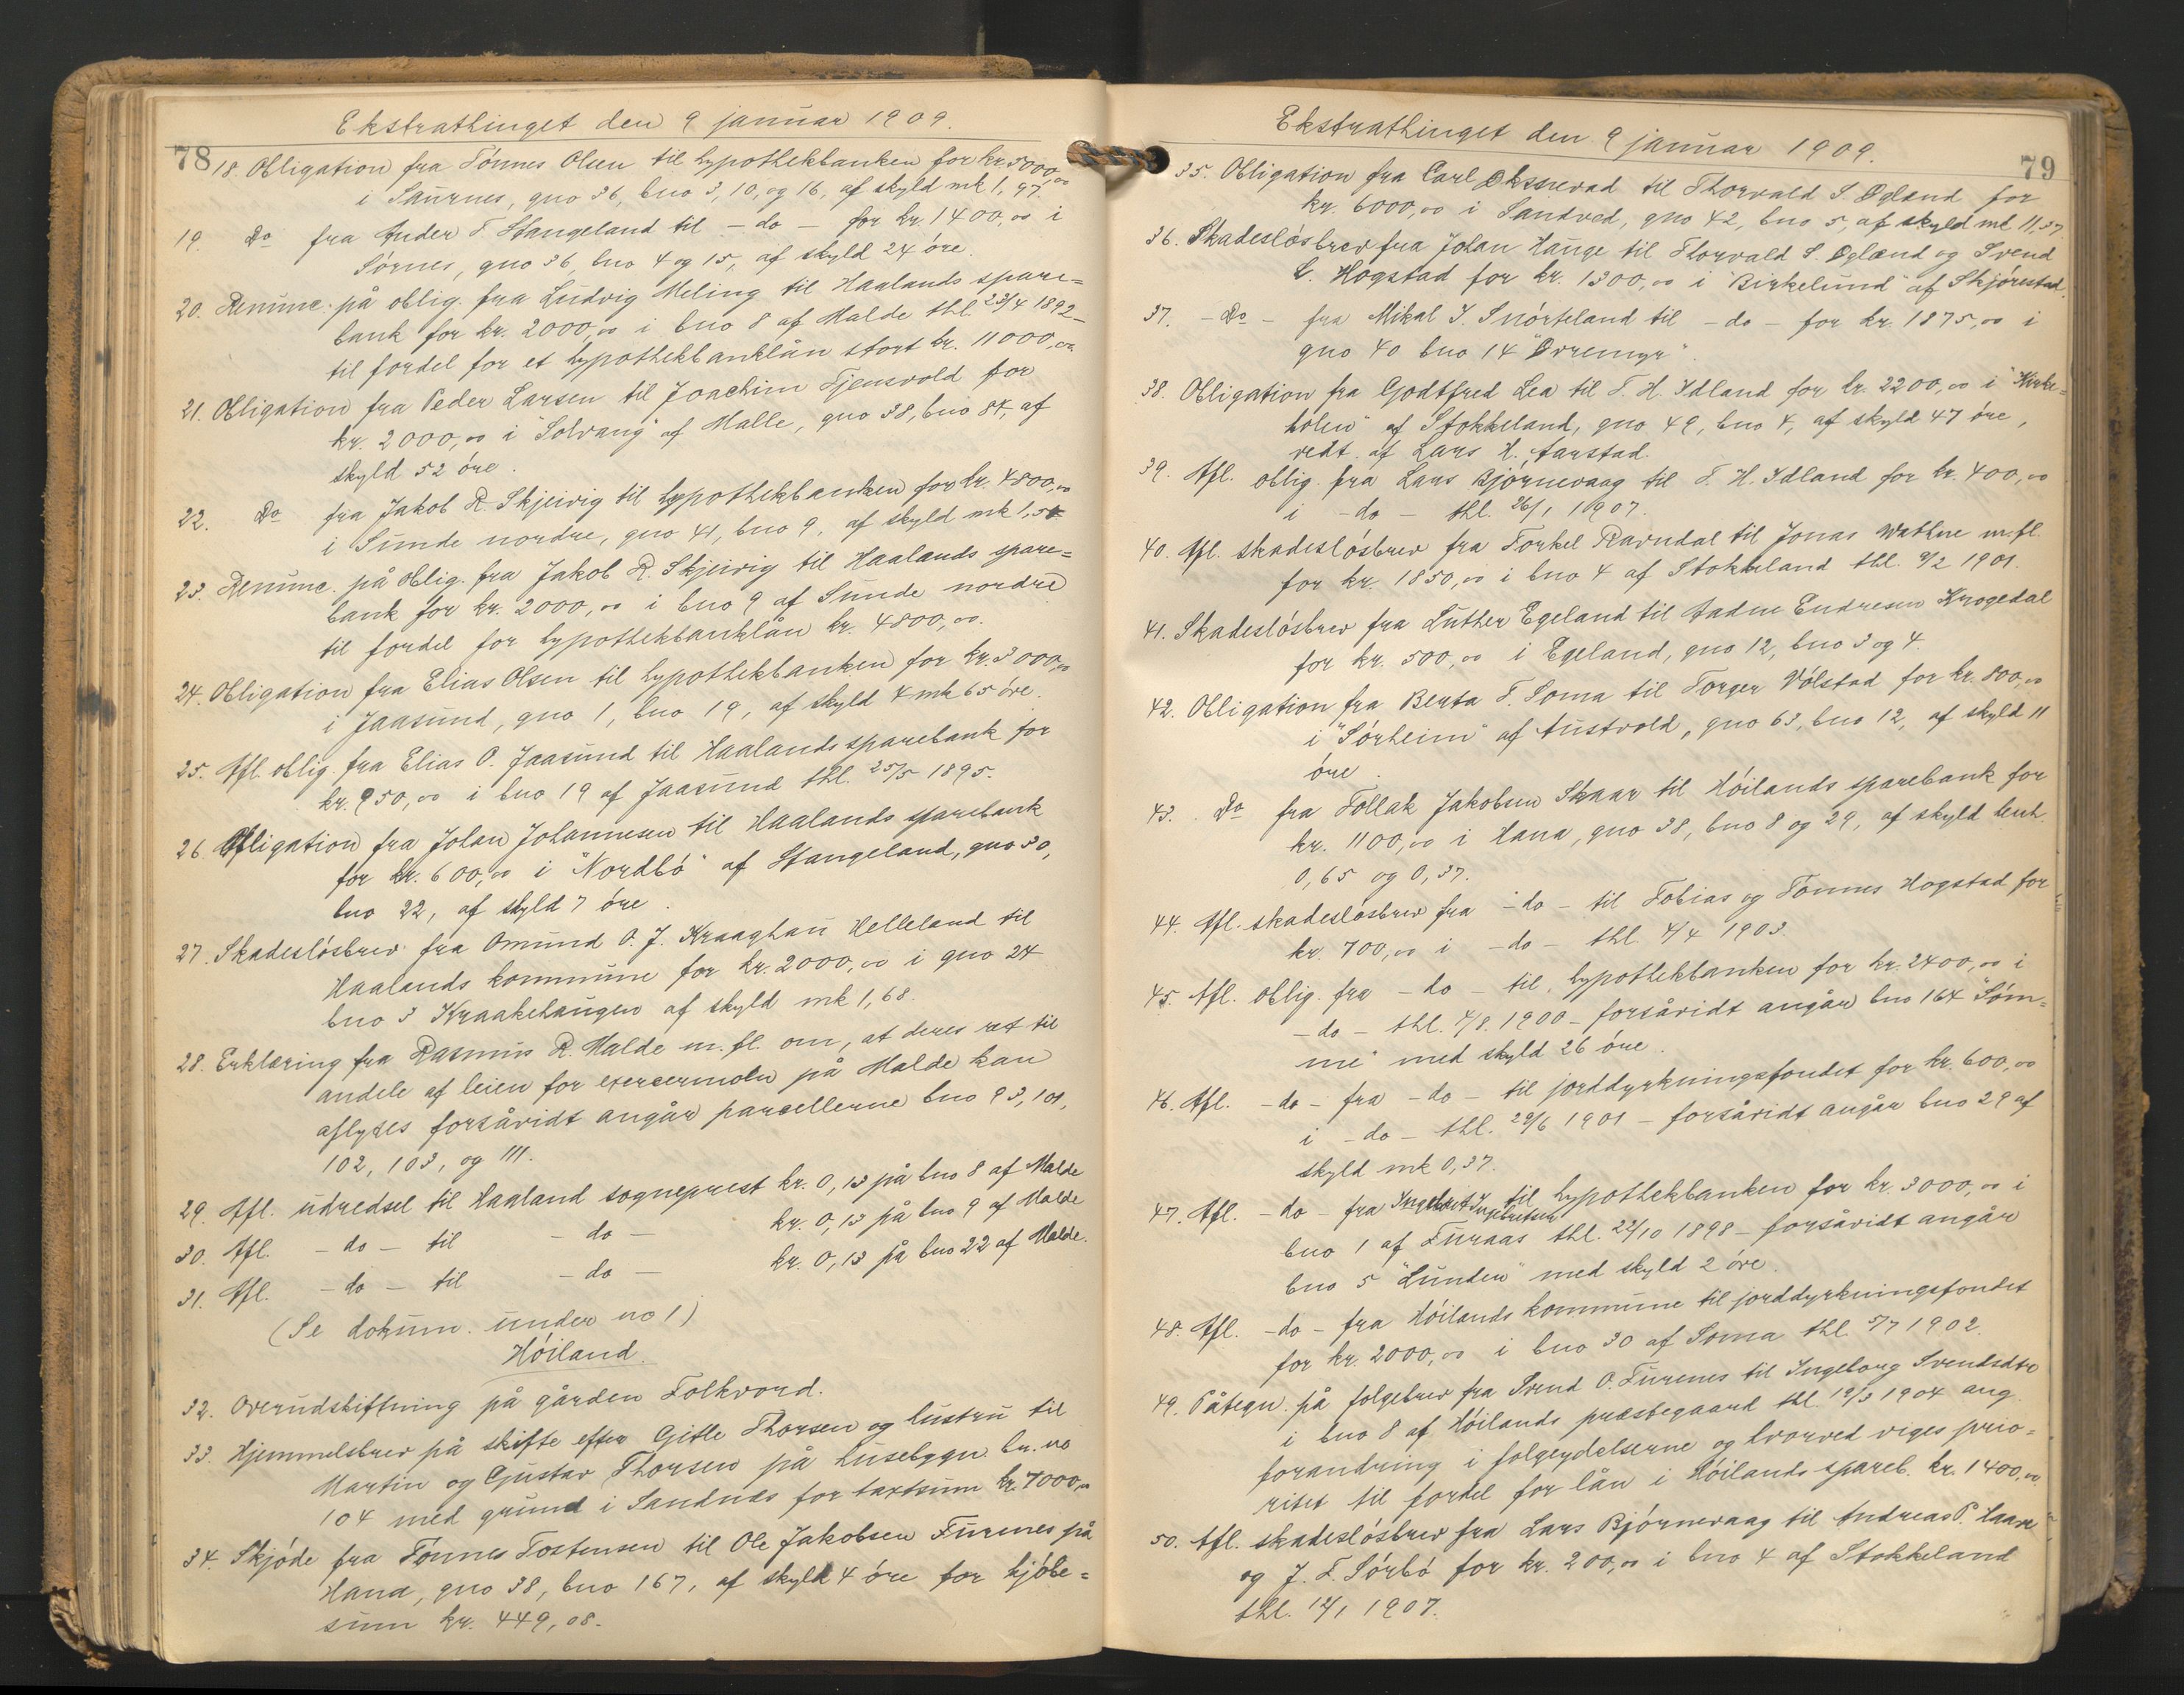 Ekstrathinget den 9 januar 1909.
78
18. Obligation fra Tönnes Olsen til hypothekbanken for kr. 5000,00
i Saurnes, gno 36, bno 3, 10, og 16, af skyld mk 1,97.
19. Do fra Ander T. Stangeland til - do - for kr. 1400,00 i
Sørnes, gno 36, bno 4 og 15, af skyld 24 öre.
20. Renunc. på oblig. fra Ludvig Meling til Haalands spare=
bank for kr. 2000,00 i bno 8 af Malde thl. 23/4 1892 -
til fordel for et hypothekbanklån stort kr. 11000,00
21. Obligation fra Peder Larsen til Joachim Tjensvold for
kr. 2000,00 i "Solvang" af Malle, gno 38, bno 84, af
skyld 52 öre.
22. Do fra Jakob R. Skjeivig til hypothekbanken for kr. 4800,00
i Sunde nordre, gno 41, bno 9, af skyld mk 1,54
23. Renunc. på oblig. fra Jakob R. Skjeivig til Haalands spare=
bank for kr. 2000,00 i bno 9 af Sunde nordre
til fordel for hypothekbanklån kr. 4800,00.
24. Obligation fra Elias Olsen til hypothekbanken for kr. 3000,00
i Jaasund, gno 1, bno 19, af skyld 4 mk 65 öre.
25. Afl. oblig. fra Elias O. Jaasund til Haalands sparebank for
kr. 950,00 i bno 19 af Jaasund thl. 25/5 1895.
26. Obligation fra Johan Johannesen til Haalands sparebank
for kr. 600,00 i "Nordbö" af Stangeland, gno 30,
bno 22, af skyld 7 öre.
27. Skadeslösbrev fra Omund O. J. Kraaghau Helleland til
Haalands kommune for kr. 2000,00 i gno 24
bno 3 Kraakehaugen af skyld mk 1,68.
28. Erklæring fra Rasmus R. Malde m. fl. om, at deres ret til
andele af leien for exercermoen på Malde kan
aflyses forsåvidt angår parcellerne bno 93, 101,
102, 103, og 111.
29. Afl. udredsel til Haaland sogneprest kr. 0,13 på bno 8 af Malde
30. Afl. - do - til - do - kr. 0,13 på bno 9 af Malde
31. Afl. - do - til - do - kr. 0,13 på bno 22 af Malde.
(Se dokum. under no 1)
Höiland.
32. Overudskiftning på gården Folkvord.
33. Hjemmelsbrev på skifte efter Gitle Thorsen og hustru til
Martin og Gustav Thorsen på husebygn. br. no
104 med grund i Sandnæs for taxtsum kr. 7000,00
34. Skjöde fra Tönnes Tostensen til Ole Jakobsen Furenes på
Hana, gno 38, bno 167, af skyld 4 öre for kjöbe=
sum kr. 449,08.
Ekstrathinget den 9 januar 1909.
79
35. Obligation fra Carl Oksnevad til Thorvald S. Øgland for
kr. 6000,00 i Sandved, gno 42, bno 5, af skyld mk 11,37.
36. Skadeslösbrev fra Johan Hauge til Thorvald S. Øglænd og Svend
L. Hogstad for kr. 1300,00 i "Birkelund" af Skjörestad.
37. - Do - fra Mikal J. Snörteland til - do - for kr. 1875,00 i
gno 40 bno 14 "Orremyr".
38. Obligation fra Godtfred Lea til T. H. Idland for kr. 2200,00 i "Kirke=
holen" af Stokkeland, gno 49, bno 4, af skyld 47 öre,
vedt. af Lars H. Aarstad.
39. Afl. oblig. fra Lars Bjørnevaag til T. H. Idland for kr. 400,00
i - do - thl. 26/1 1907.
40. Afl. skadeslösbrev fra Torkel Ravndal til Jonas Wathne m. fl.
for kr. 1850,00 i bno 4 af Stokkeland thl. 9/2 1901.
41. Skadeslösbrev fra Luther Egeland til Aadne Endresen Krogedal
for kr. 500,00 i Egeland, gno 12, bno 3 og 4.
42. Obligation fra Berta T. Soma til Torger Völstad for kr. 800,00
i "Sörheim" af Austvold, gno 63, bno 12, af skyld 11
öre.
43. Do fra Tollak Jakobsen Skaar til Höilands sparebank for
kr. 1100,00 i Hana, gno 38, bno 8 og 29, af skyld benh.
0,65 og 0,37.
44. Afl. skadeslösbrev fra - do - til Tobias og Tönnes Hogstad for
kr. 700,00 i - do - thl. 4/4 1903.
45. Afl. oblig. fra - do - til hypothekbanken for kr. 2400,00 i
- do - thl. 4/8. 1900 - forsåvidt angår bno 164 "Söm=
me" med skyld 26 öre.
46. Afl. - do - fra - do - til jorddyrkningsfondet for kr. 600,00
i - do - thl. 29/6 1901 - forsåvidt angår bno 29 af
skyld mk 0,37.
47. Afl. - do - fra Ingebret Ingebretsen til hypothekbanken for kr. 3000,00 i
bno 1 af Furaas thl. 22/10 1898 - forsåvidt angår
bno 5 "Lunden" med skyld 2 öre.
48. Afl. - do - fra Höilands kommune til jorddyrkningsfondet
for kr. 2000,00 i bno 30 af Soma thl. 5/7 1902.
49. Påtegn. på folgebrev fra Svend O. Furenes til Ingeborg Svendsdtr
i bno 8 af Höilands præstegaard thl. 19/3 1904 ang.
forandring i folgeydelserne og hvorved viges prio=
ritet til fordel for lån i Höilands spareb. kr. 1400,00
50. Afl. skadeslösbrev fra Lars Bjørnevaag til Andreas P. Haave
og J. T. Sörbö for kr. 200,00 i bno 4 af Stokkeland
thl. 12/1 1907.